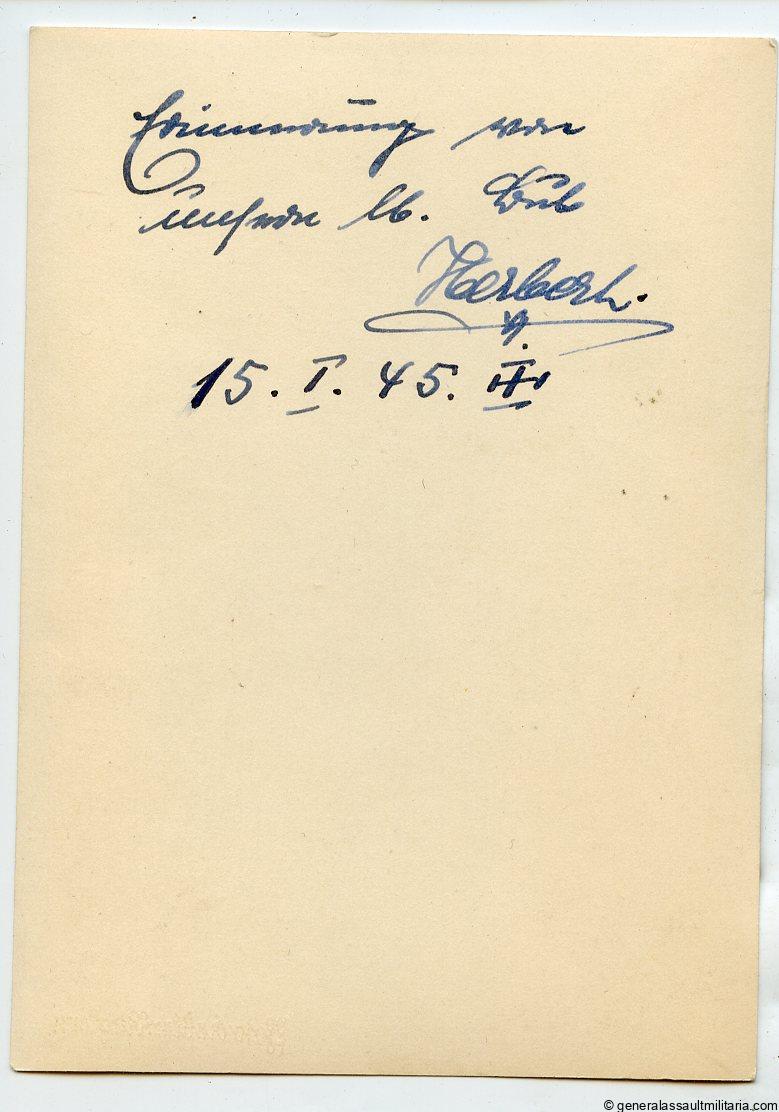 Erinnerung von
unsern lb. Bub
Herbert.
15. I. 45.
© generalassaultmilitaria.com